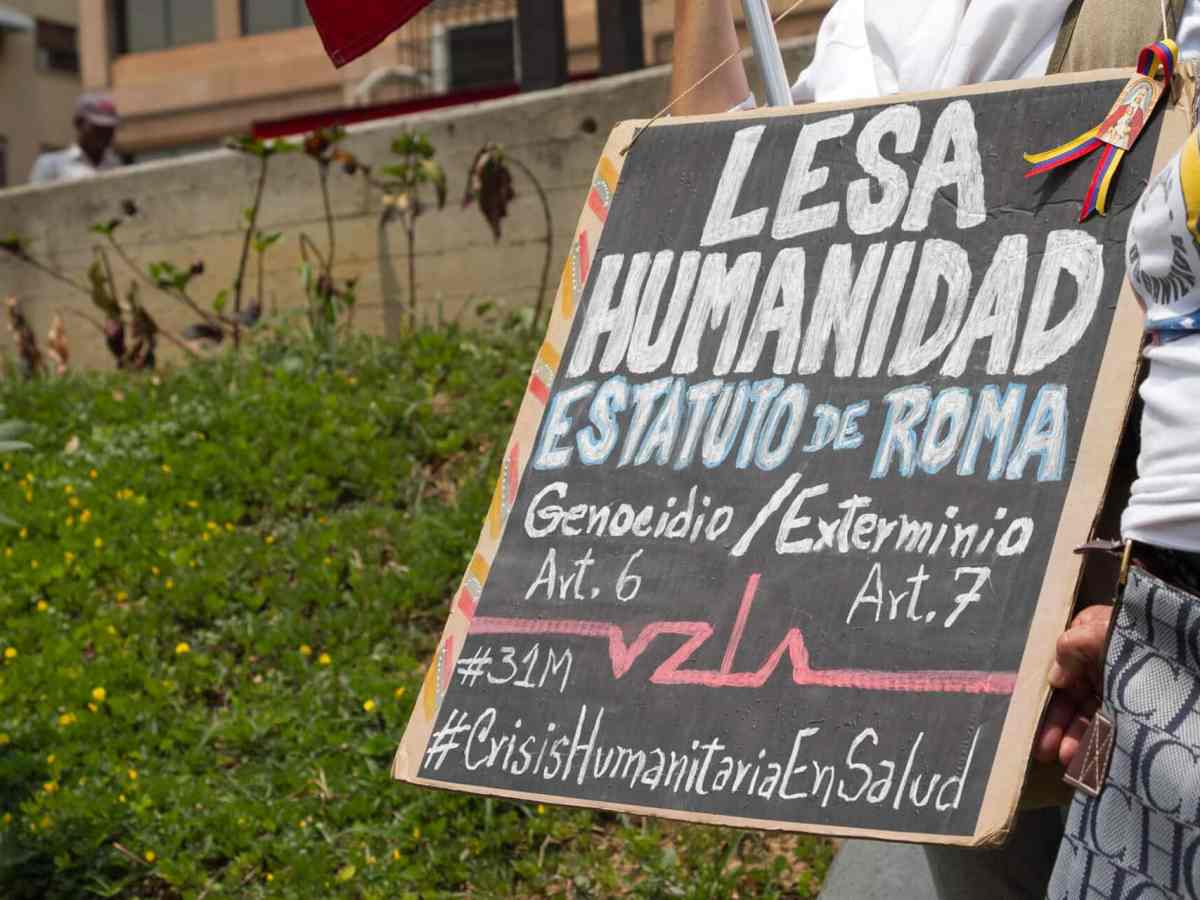 LESA
HUMANIDAD
ESTATUTO DE ROMA
Genocidio / Exterminio
Art. 6 Art. 7
vzla
#31M
#CrisisHumanitariaEnSalud
CH
CHC